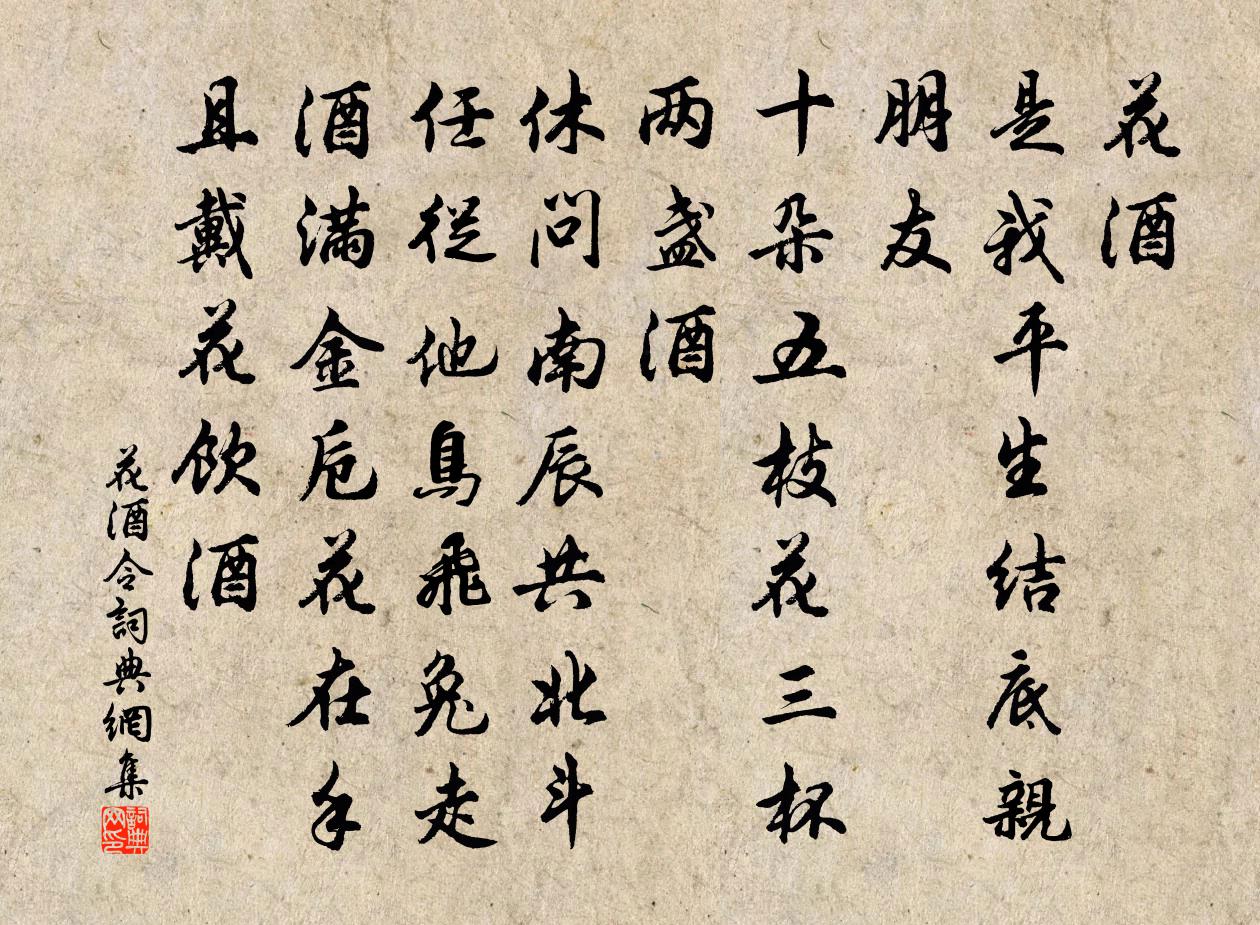 花酒
是我平生結底親
朋友
十朵五枝花三杯
两盏酒
休問南辰共北斗
任從他鳥飛兔走
酒滿金卮花在手
且戴花飲酒
花酒令詞典網集
詞典网印